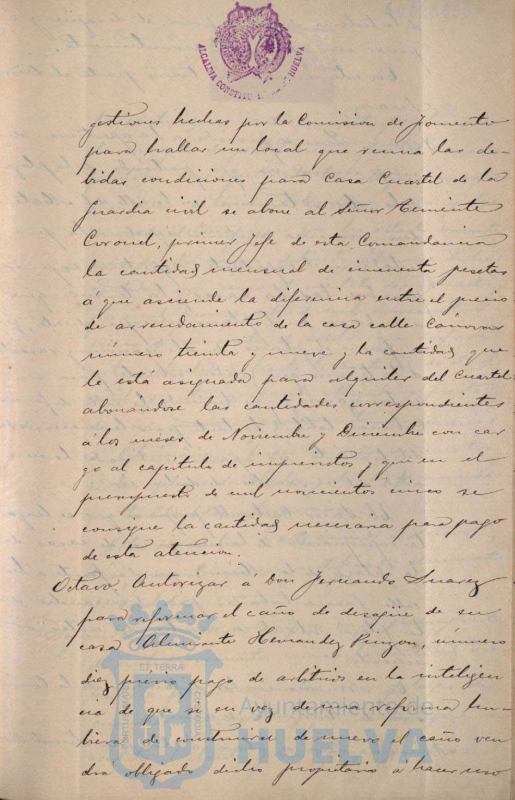 ALCALDIA CONSTITU HUELVA
gestiones hechas por la Comision de Fomento
para hallar un local que reuna las de-
bidas condiciones para Casa Cuartel de la
Guardia civil se abone al Señor Teniente
Coronel, primer Jefe de esta Comandancia
la cantidad mensual de cincuenta pesetas
á que asciende la diferencia entre el precio
de arrendamiento de la casa calle Cánovas
número treinta y nueve y la cantidad que
le está asignada para alquiler del Cuartel
abonándose las cantidades correspondientes
á los meses de Noviembre y Diciembre con car
go al capítulo de imprevistos, y que en el
presupuesto de mil novecientos cinco se
consigne la cantidad necesaria para pago
de esta atencion.
Octavo. Autorizar á Don Fernando Suarez
para reformar el caño de desagüe de su
casa Almirante Hernandez Pinzon, número
diez previo pago de arbitrios en la inteligen
cia de que si en vez de una reforma hu-
biera de construirse de nuevo el caño ven
drá obligado dicho propietario a hacer uso
Ayuntamiento de
HUELVA